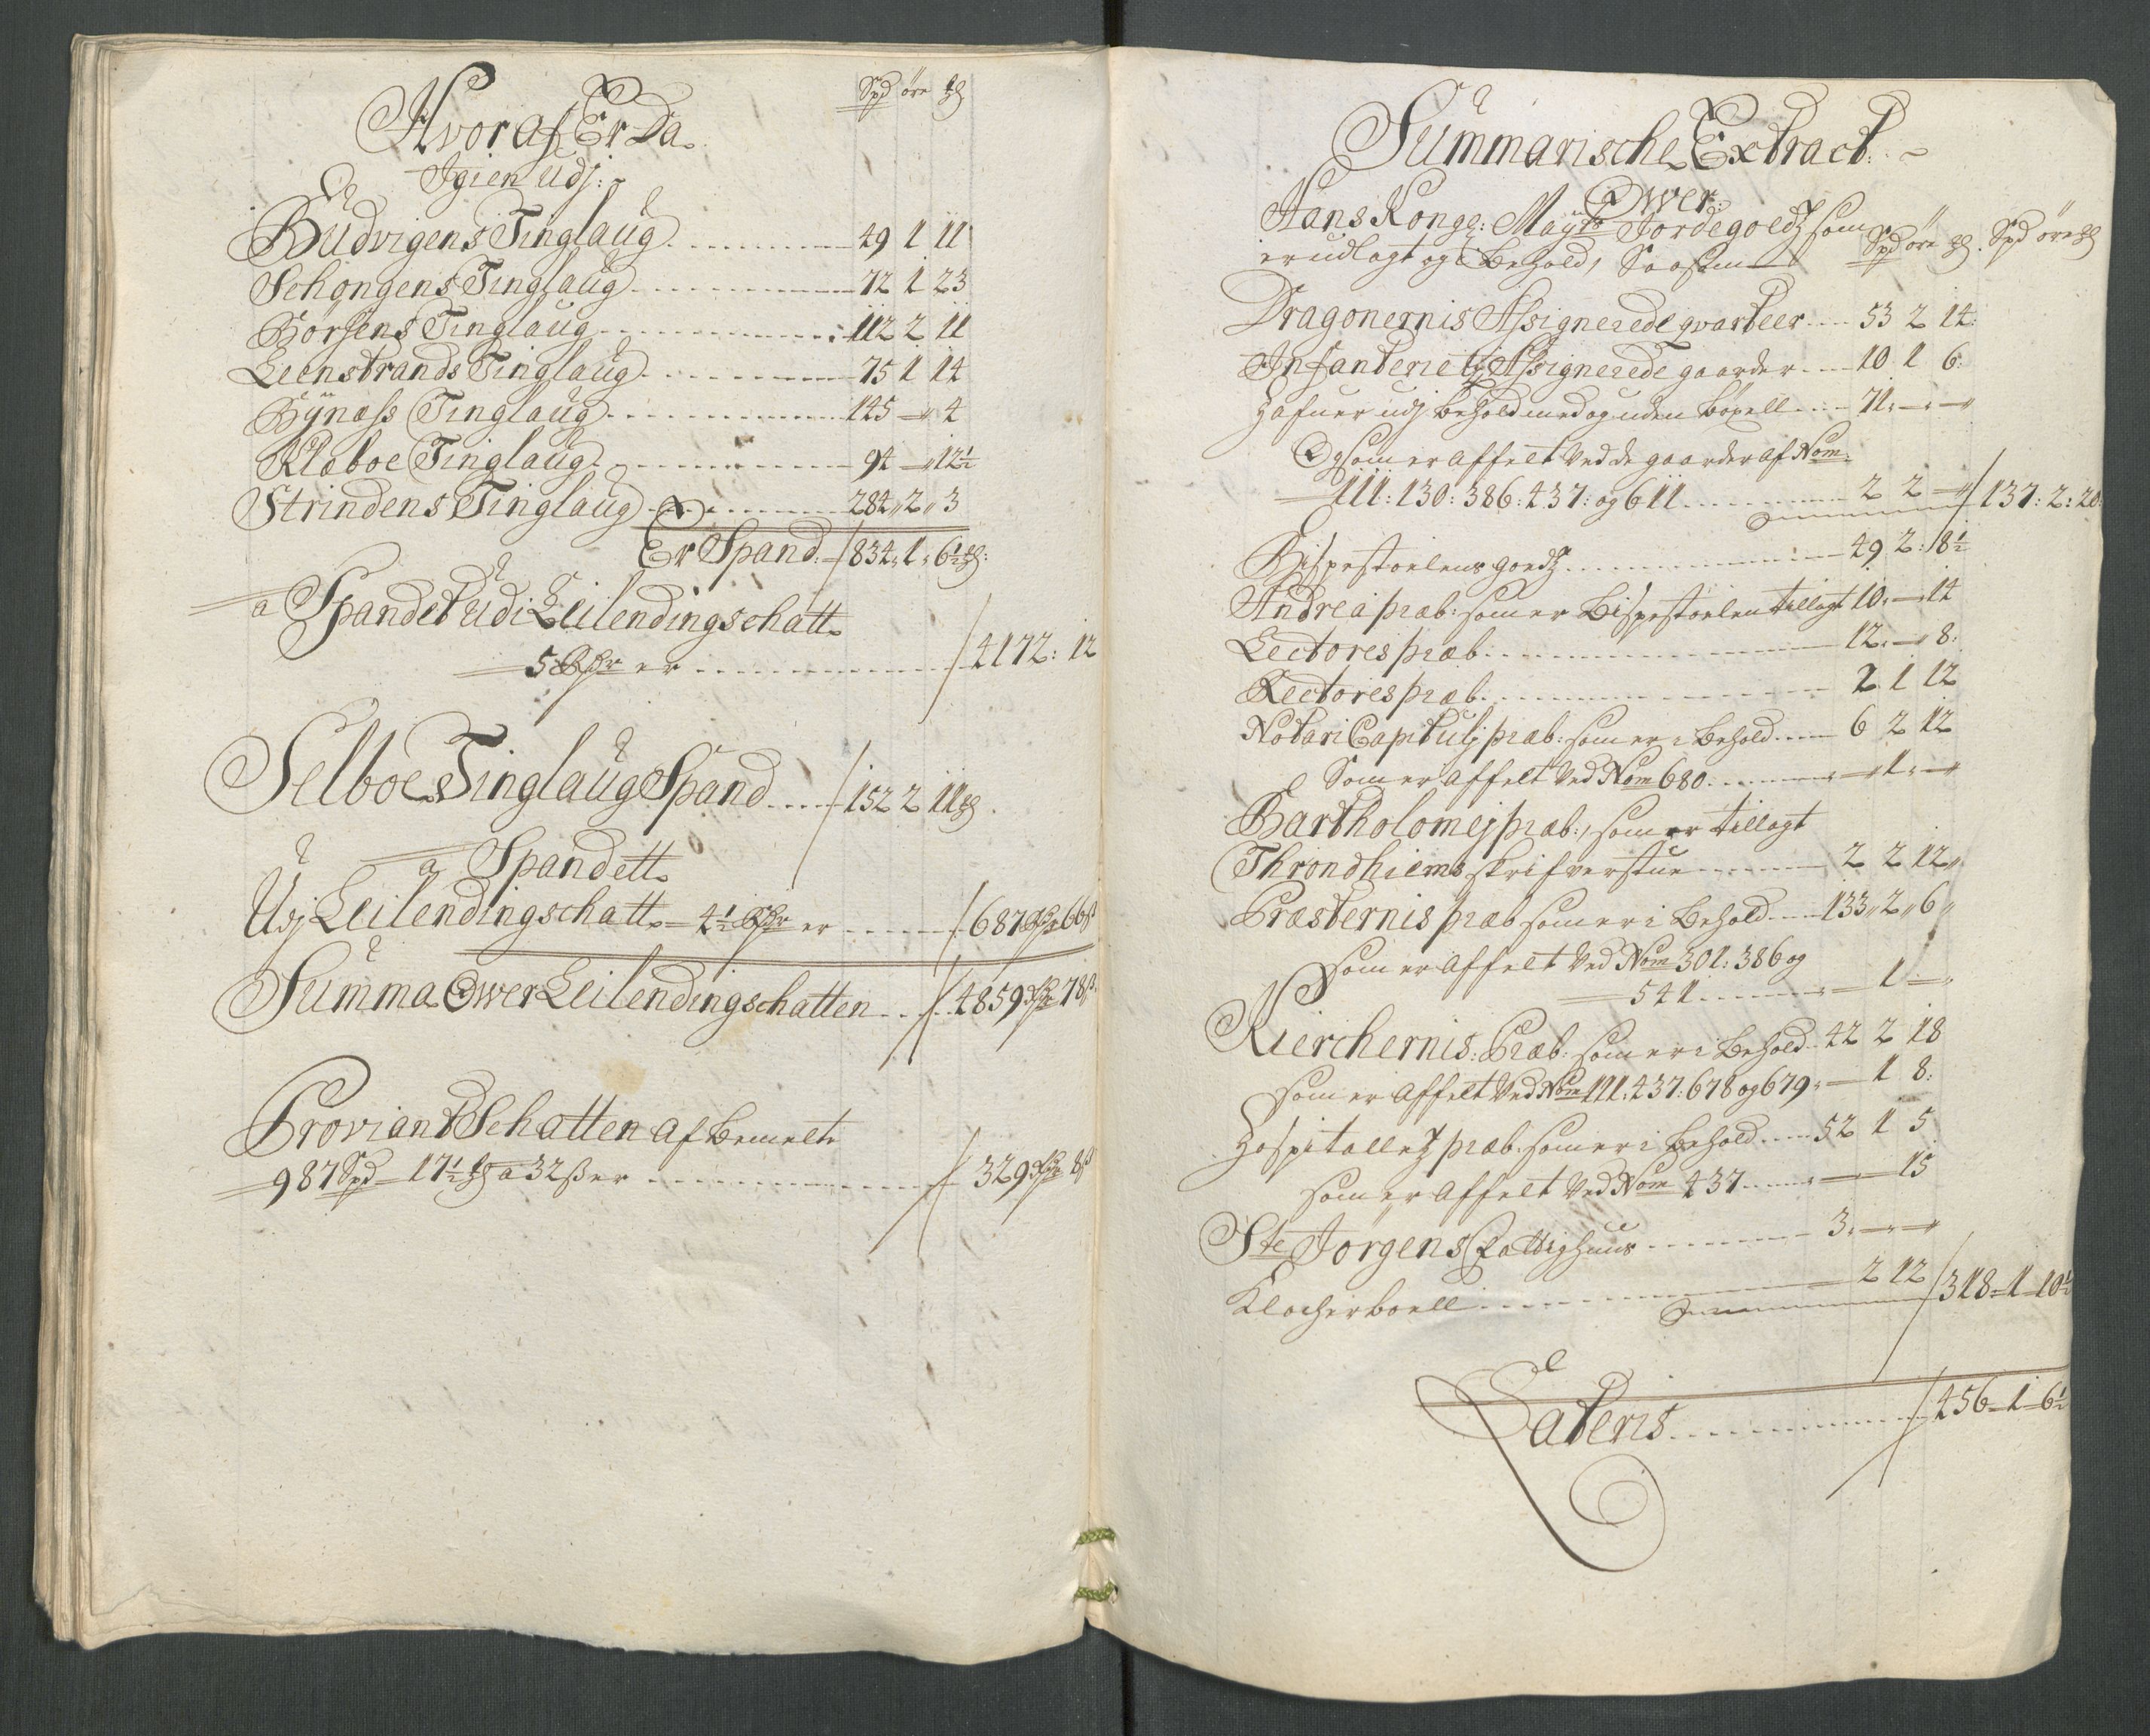 Spd öre
Hvoraf Er Da
Igien Udj:
Budvigens Tinglaug 49 1 11
Schongens Tinglaug 72 1 23
Börsens Tinglaug 112 2 11
Leenstrands Tinglaug 75 1 14
Bÿnæss Tinglaug 145 — 4
Klæboe Tinglaug 94 — 12½
Strindens Tinglaug 284 „ 2 „ 3
Er Spand 834 „ 1 „ 6½
a Spandet Udi Leilendingschatt
5 er 4172: 12
Selboe Tinglaug Spand 152 2 11
a Spandett
Udj Leilendingschatt 4½ er 687 66
Summa Ower Leilendingschatten 4859 78
Proviant Schatten af bemelte
987 Spd 17½ a 32 ß er 329 8
Summarische Extract
Ower
Hans Konge: Mayts Jordegodtz som
er udlagt og i behold, Saasom Spd öre Spd öre
Dragonernis Assignerede qvarteer 53 2 14:
Infanteriets Assignerede gaarder 10 1 6:
Hafuer udj behold med og uden böxell 71 — —
Og som er affelt ved de gaarder af Nom:
111: 130: 386: 437: og 611 2 2 — 137: 2: 20:
Bispestoelens goedtz 49 2: 8½
Andrea præb: som er bispestoelen tillagt 10 — 14
Lectores præb 12 — 8:
Rectores præb 2 1 12
Notari Capitulj præb: som er i behold 6 2 12
Som er affelt ved Nom 680 — 1 —
Bartholomej præb:, som er tillagt
Throndhiems skrifverstue 2 2 12
Præsternis præb som er i behold 133 „ 2 „ 6
som er affelt ved Nom 301: 386 og
541 — 1 —
Kierchernis: Præb: som er i behold 42 2 18
som er affelt ved Nom 111: 437: 678 og 679 — 1 8:
Hospitalletz præb: som er i behold 52 1 5
som er affelt ved Nom 437 — 15
Ste Jörgens fattighuus 3 — —
Klocherboell 2 12 318 — 1 — 10½
Lateris 456 — 1 — 6½